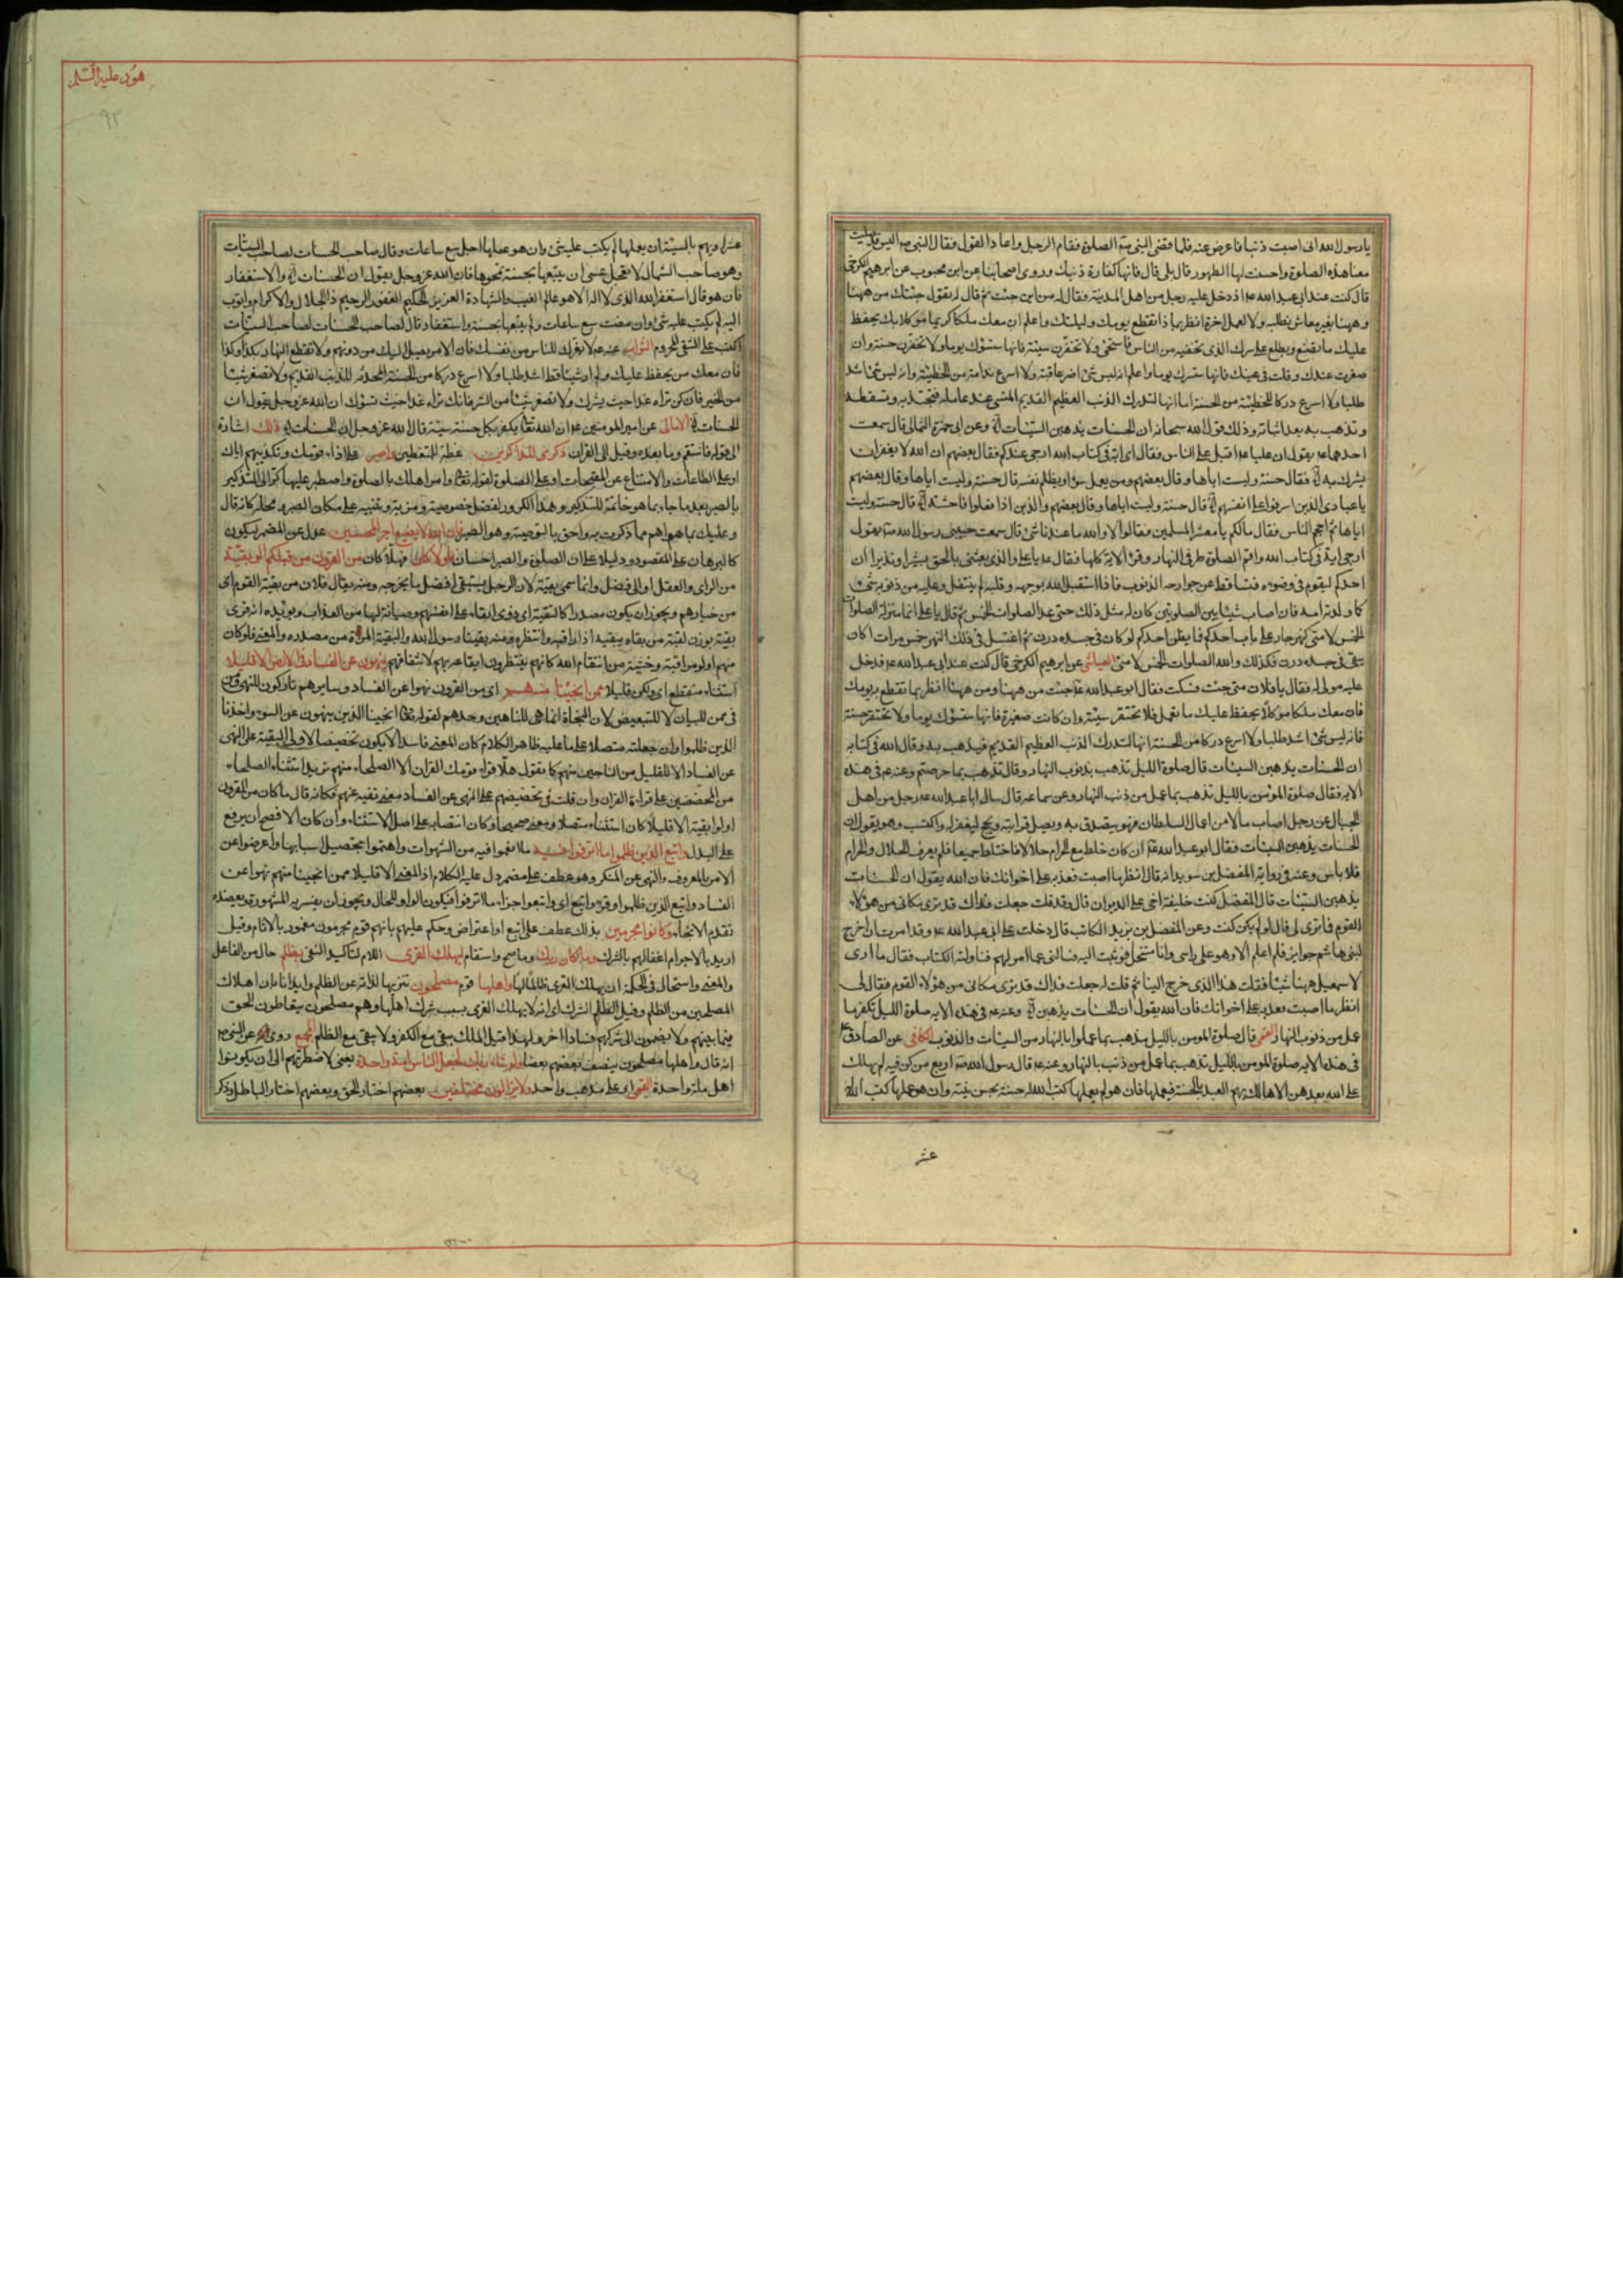 يا رسول الله انى اصبت ذنبا فاعرض عنه فلما قضى النبى الصلوة فقام الرجل واعاد القول فقال النبى اليس قد صليت
معنا هذه الصلوة واحسنت لها الطهور قال بلى قال فانها كفارة ذنبك وروى اصحابنا عن ابن محبوب عن ابرهيم الكرخى
قال كنت عند ابى عبد الله اذ دخل عليه رجل من اهل المدينة فقال له من اين جئت ثم قال له تقول جئتك من ههنا
وههنا لغير معاش تطلبه ولا لعمل اخرة انظر بما ذا تقطع يومك وليلتك واعلم ان معك ملكا كريما موكلا بك يحفظ
عليك ما تصنع ويطلع على سرك الذى تخفيه من الناس فاستحى ولا تحقرن سيئة فانها ستسؤك يوما ولا تحقرن حسنة وان
صغرت عندك وقلت فى عينك فانها ستسرك يوما واعلم انه ليس شئ اضر عاقبة ولا اسرع ندامة من الخطيئة وانه ليس شئ اشد
طلبا ولا اسرع دركا للخطيئة من الحسنة اما انها لتدرك الذنب العظيم القديم المنسى عند عامله فتجتذبه وتسقطه
وتذهب به بعد اثباته وذلك قول الله سبحانه ان الحسنات يذهبن السيئات وعن ابى حمزة الثمالى قال سمعت
احدهما يقول ان عليا اقبل على الناس فقال اى اية فى كتاب الله ارجى عندكم فقال بعضهم ان الله لا يغفر ان
يشرك به فقال حسنة وليست اياها وقال بعضهم ومن يعمل سوءا او يظلم نفسه قال حسنة وليست اياها وقال بعضهم
يا عبادى الذين اسرفوا على انفسهم قال حسنة وليست اياها وقال بعضهم والذين اذا فعلوا فاحشة قال حسنة وليست
اياها ثم احجم الناس فقال مالكم يا معشر المسلمين فقالوا لا والله ما عندنا شئ قال سمعت حبيبى رسول الله يقول
ارجى اية فى كتاب الله واقم الصلوة طرفى النهار وقرأ الاية كلها فقال يا على والذى بعثنى بالحق بشيرا ونذيرا ان
احدكم ليقوم فى وضوءه فتساقط عن جوارحه الذنوب فاذا استقبل الله بوجهه وقلبه لم ينفتل وعليه من ذنوبه شئ
كما ولدته امه فان اصاب شيئا بين الصلوتين كان له مثل ذلك حتى عد الصلوات الخمس ثم قال يا على انما منزلة الصلوات
الخمس لامتى كنهر جار على باب احدكم فما يظن احدكم لو كان فى جسده درن ثم اغتسل فى ذلك النهر خمس مرات اكان
يبقى فى جسده درن فكذلك والله الصلوات الخمس لامتى العياشى عن ابرهيم الكرخى قال كنت عند ابى عبد الله فدخل
عليه مولى له فقال يا فلان متى جئت فسكت فقال ابو عبد الله جئت من ههنا ومن ههنا انظر بما تقطع به يومك
فان معك ملكا موكلا يحفظ عليك ما تعمل فلا تحتقر سيئة وان كانت صغيرة فانها ستسؤك يوما ولا تحتقر حسنة
فانه ليس شئ اشد طلبا ولا اسرع دركا من الحسنة انها لتدرك الذنب العظيم القديم فيذهب به وقال الله فى كتابه
ان الحسنات يذهبن السيئات قال صلوة الليل تذهب بذنوب النهار وقال تذهب بما جرحتم وعنه فى هذه
الاية فقال صلوة المؤمن بالليل تذهب بما عمل من ذنب النهار وعن سماعة قال سال ابا عبد الله رجل من اهل
الجبال عن رجل اصاب مالا من اعمال السلطان فهو يتصدق به ويصل قرابته ويحج ليغفر له ما اكتسب وهو يقول ان
الحسنات يذهبن السيئات فقال ابو عبد الله ان كان خلط مع الحرام حلالا فاختلط جميعا فلم يعرف الحلال والحرام
فلا باس وعنه فى رواية المفضل بن سويد انه قال انظر ما اصبت فعد به على اخوانك فان الله يقول ان الحسنات
يذهبن السيئات قال المفضل كنت خليفة اخى على الديوان قال وقد قلت جعلت فداك قد ترى مكانى من هؤلاء
القوم فما ترى لى قال لو لم يكن كنت وعن المفضل بن يزيد الكاتب قال دخلت على ابى عبد الله وقد امرت ان اخرج
لبنى هاشم جوايز فلم اعلم الا وهو على راسى وانا مستخل فوثبت اليه فسالنى عما امر لهم فناولته الكتاب فقال ما ارى
لاسمعيل ههنا شيئا فقلت هذا الذى خرج الينا ثم قلت له جعلت فداك قد ترى مكانى من هؤلاء القوم فقال لى
انظر ما اصبت فعد به على اخوانك فان الله يقول ان الحسنات يذهبن وعنه فى هذه الاية صلوة الليل تكفر ما
عمل من ذنوب النهار القمى قال صلوة المومن بالليل يذهب بما عملوا بالنهار من السيئات والذنوب الكافى عن الصادق
فى هذه الاية صلوة المومن بالليل تذهب بما عمل من ذنب بالنهار وعنه قال رسول الله اربع من كن فيه لم يهلك
على الله بعدهن الا هالك يهم العبد بالحسنة فيعملها فان هو لم يعملها كتب الله له حسنة بحسن نيته وان هو عملها كتب الله
عشر
هود عليه السلم
٩٢
عشرا ويهم بالسيئة ان يعملها لم يكتب عليه شئ وان هو عملها اجل سبع ساعات وقال صاحب الحسنات لصاحب السيئات
وهو صاحب الشمال لا تعجل عسى ان يتبعها بحسنة تمحوها فان الله عز وجل يقول ان الحسنات او الاستغفار
فان هو قال استغفر الله الذى لا اله الا هو عالم الغيب والشهادة العزيز الحكيم الغفور الرحيم ذا الجلال والاكرام واتوب
اليه لم يكتب عليه شئ وان مضت سبع ساعات ولم يتبعها بحسنة واستغفار قال صاحب الحسنات لصاحب السيئات
اكتب على الشقى المحروم الثواب عنه لا يغرك للناس من نفسك فان الامر يصل اليك من دونهم ولا تقطع النهار بكذا وكذا
فان معك من يحفظ عليك ولم ار شيئا قط اشد طلبا ولا اسرع دركا من الحسنة المحدثة للذنب القديم ولا تصغر شيئا
من الخير فانك تراه غدا حيث يسرك ولا تصغر شيئا من الشر فانك تراه غدا حيث تسؤك ان الله عز وجل يقول ان
الحسنات الامالى عن امير المومنين ان الله تعالى يكفر بكل حسنة سيئة قال الله عز وجل ان الحسنات ذلك اشارة
الى قوله فاستقم وما بعده وقيل الى القران ذكرى للذاكرين عظة للمتعظين واصبر على اذاء قومك وتكذيبهم اياك
او على الطاعات والامتناع عن المقبحات او على الصلوة لقوله تعالى وامر اهلك بالصلوة واصطبر عليها كرا الى التذكير
بالصبر بعد ما جاء بما هو خاتمة للتذكير وهذا الكرور لفضل خصوصية ومزية وتنبيه على مكان الصبر ومحله كانه قال
وعليك بما هو اهم مما ذكرت به واحق بالتوصية وهو الصبر فان الله لا يضيع اجر المحسنين عدل عن المضمر ليكون
كالبرهان على المقصود ودليلا على ان الصلوة والصبر احسان فلولا كان فهلا كان من القرون من قبلكم اولو بقية
من الراى والعقل او اولى فضل وانما سمى بقية لان الرجل يستبقى افضل ما يخرجه ومنه يقال فلان من بقية القوم اى
من خيارهم ويجوز ان يكون مصدرا كالتقية اى ذوى ابقاء على انفسهم وصيانة لها من العذاب ويؤيده انه قرئ
بقية بوزن لقية من بقاه يبقيه اذا راقبه وانتظره ومنه بقينا رسول الله والبقية المرة من مصدره والمعنى فلو كان
منهم اولو مراقبة وخشية من انتقام الله كانهم ينتظرون ايقاعه بهم لاشفاقهم ينهون عن الفساد فى الارض الا قليلا
استثناء منقطع اى ولكن قليلا ممن انجينا منهم اى من القرون نهوا عن الفساد وسايرهم تاركون للنهى
فى ممن للبيان لا للتبعيض لان النجاة انما هى للناهين وحدهم لقوله تعالى انجينا الذين ينهون عن السوء واخذنا
الذين ظلموا وان جعلته متصلا على ما عليه ظاهر الكلام كان المعنى فاسدا لا يكون تحضيضا لاولى البقية على النهى
عن الفساد الا للقليل من الناجين منهم كما تقول هلا قراء قومك القران الا الصلحاء منهم تريد استثناء الصلحاء
من المحضضين على قراءة القران وان قلت فى تحضيضهم على النهى عن الفساد معنى نفيه عنهم فكانه قال ما كان من القرون
اولوا بقية الا قليلا كان استثناء متصلا ومعنى صحيحا وكان انتصابه على اصل الاستثناء وان كان الافصح ان يرفع
على البدل واتبع الذين ظلموا ما اترفوا فيه ما انعموا فيه من الشهوات واهتموا بتحصيل اسبابها واعرضوا عن
الامر بالمعروف والنهى عن المنكر وهو عطف على مضمر دل عليه الكلام اذ المعنى الا قليلا ممن انجينا منهم نهوا عن
الفساد واتبع الذين ظلموا وقرئ واتبع اى واتبعوا جزاء ما اترفوا فيكون الواو للحال ويجوز ان يفسر به المشهورة ويعضده
تقدم الانجاء وكانوا مجرمين بذلك عطف على اتبع او اعتراض وحكم عليهم بانهم قوم مجرمون مغمور بالاثام وقيل
اريد بالاجرام اغفالهم بالشرك وما كان ربك وما صح واستقام ليهلك القرى اللام لتاكيد النفى بظلم حال من الفاعل
والمعنى واستحال فى الحكمة ان يهلك القرى ظالما لها واهلها قوم مصلحون تنزيها لذاته عن الظلم وايذانا بان اهلاك
المصلحين من الظلم وقيل الظلم الشرك اى انه لا يهلك القرى بسبب شرك اهلها وهم مصلحون يتعاطون الحق
فيما بينهم ولا يضمون الى شركهم فسادا اخر ولهذا قيل الملك يبقى مع الكفر ولا يبقى مع الظلم المجمع روى عن النبى
انه قال واهلها مصلحون ينصف بعضهم بعضا ولو شاء ربك لجعل الناس امة واحدة يعنى لاضطرهم الى ان يكونوا
اهل ملة واحدة القمى اى على مذهب واحد ولا يزالون مختلفين بعضهم اختار الحق وبعضهم اختار الباطل وذكر